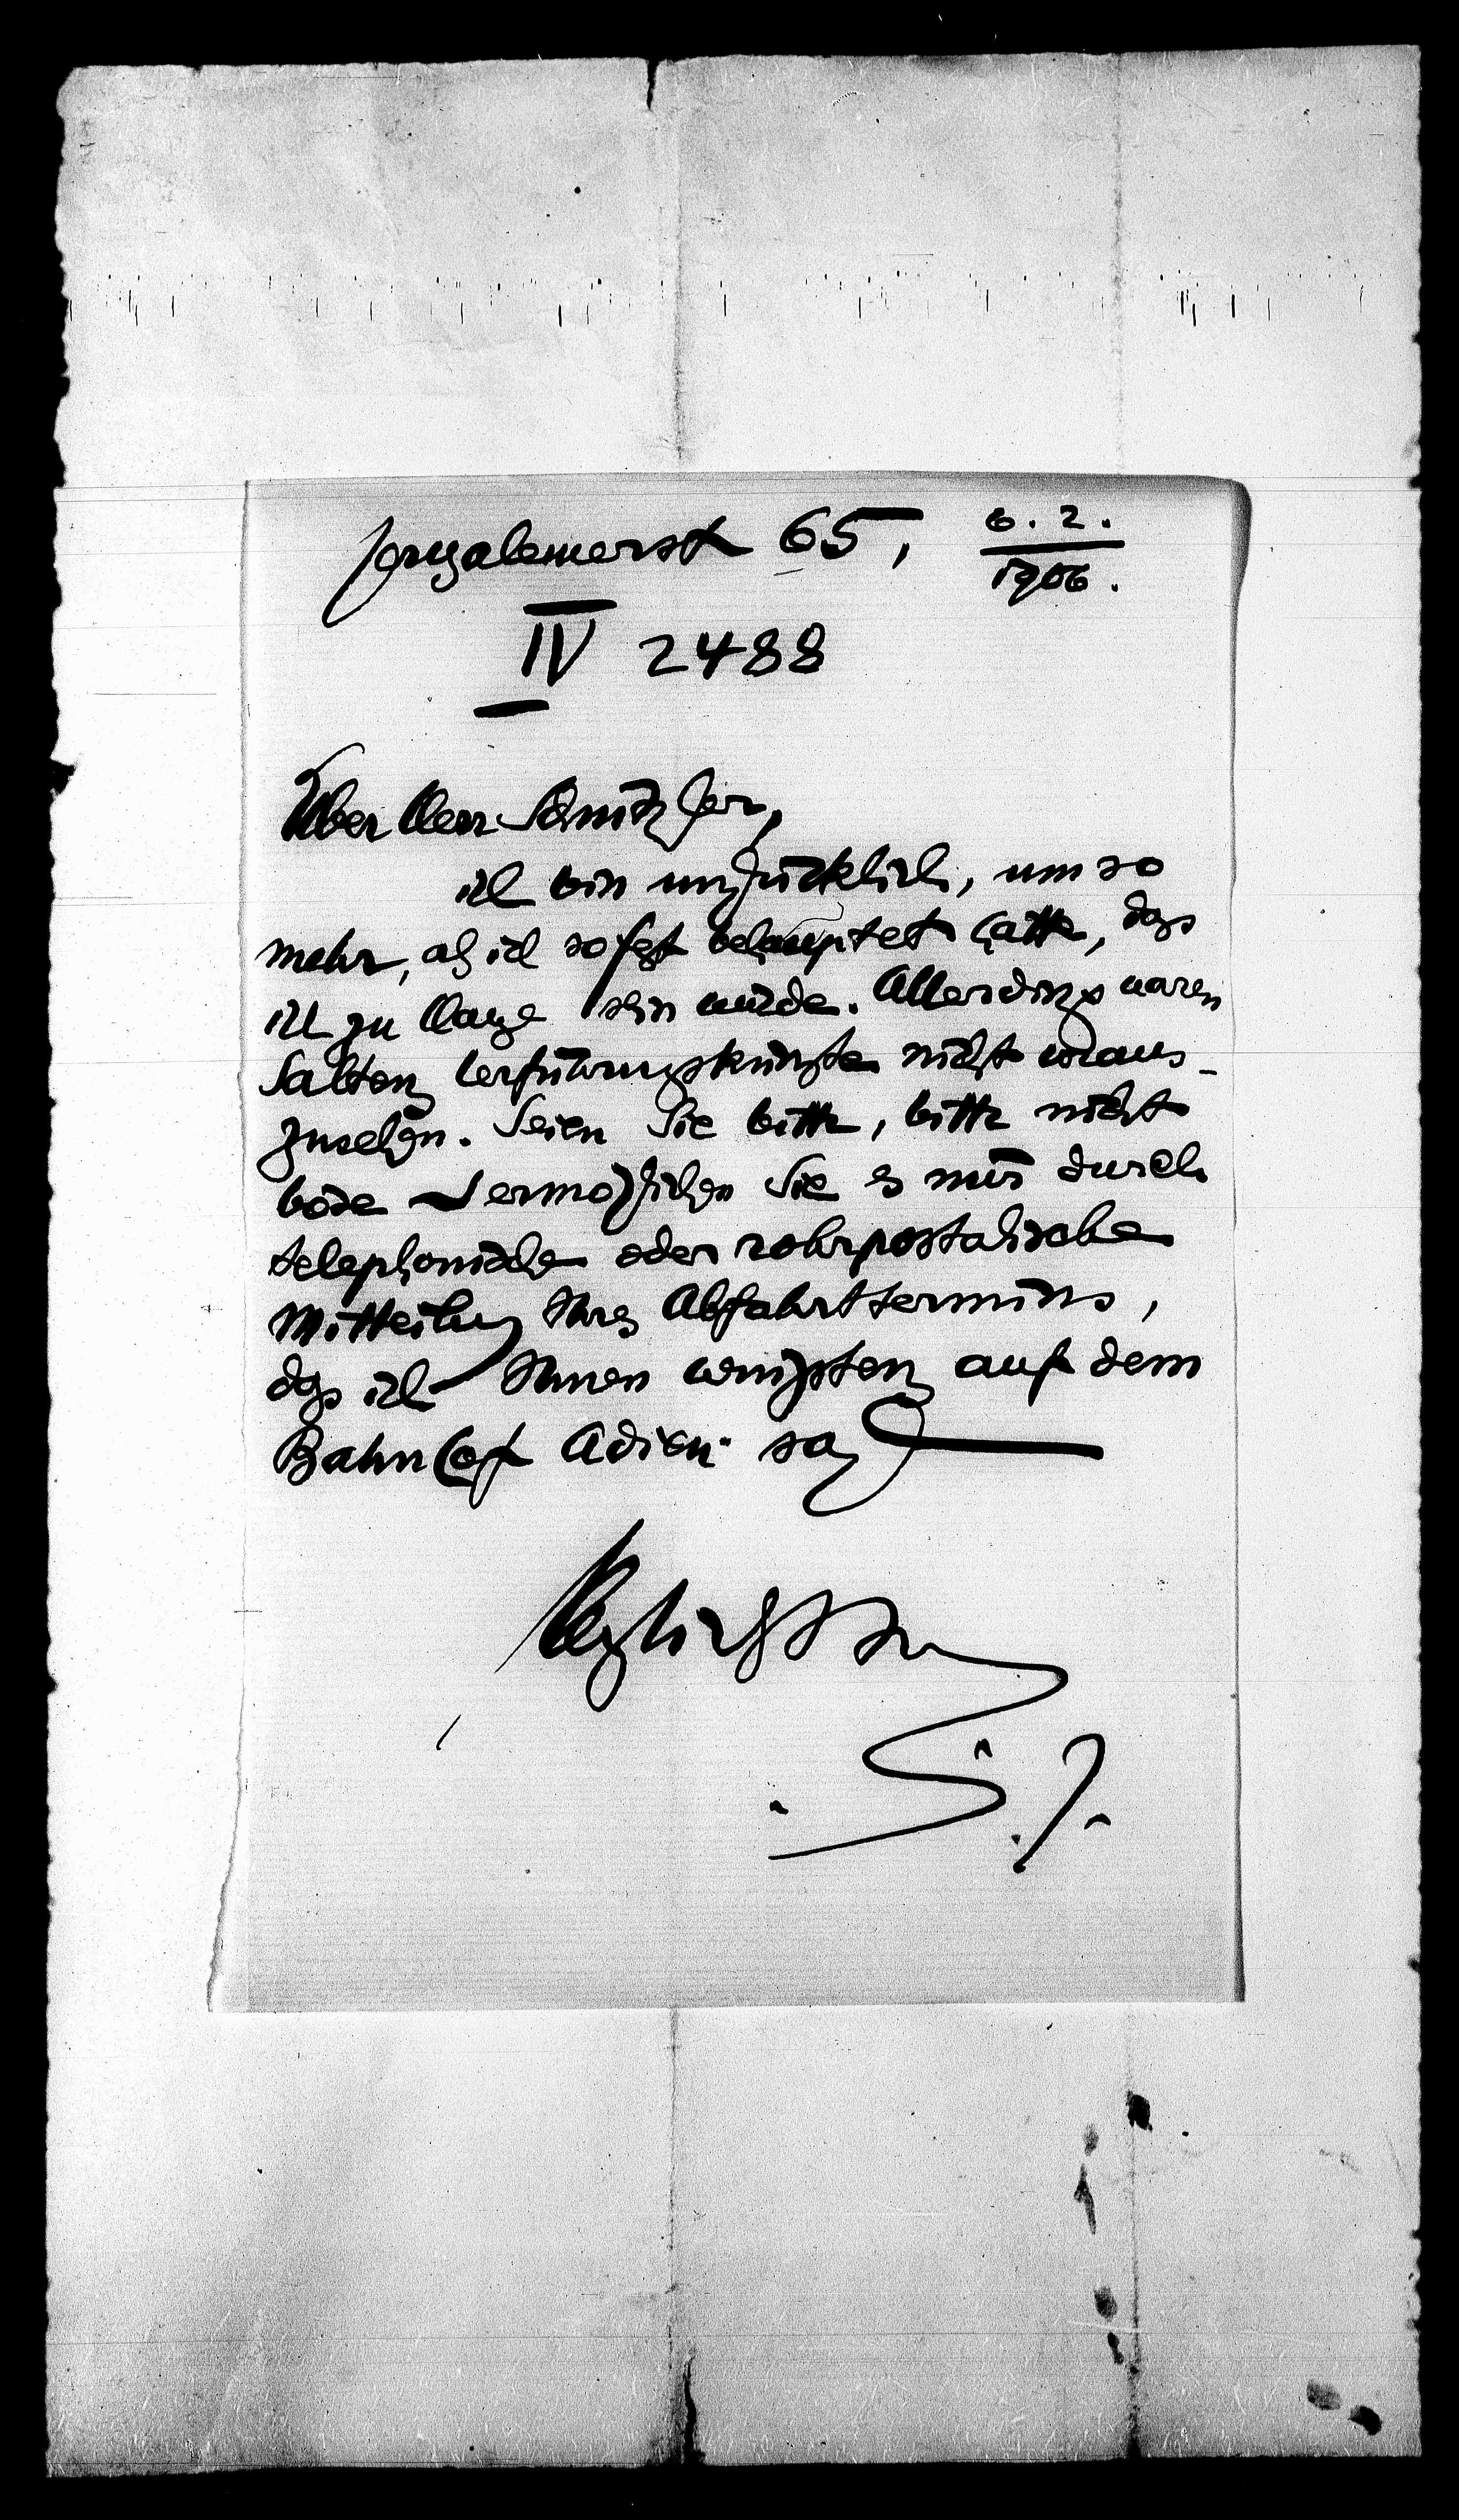 Jerusalemerstr 65, 6. 2. 1906.
IV 2488
Lieber Herr Schnitzler,
ich bin unglücklich, um so
mehr, als ich so fest behauptet hatte, dass
ich zu Hause sein würde. Allerdings waren
Saltens Verführungskünste nicht voraus-
zusehen. Seien Sie bitte, bitte nicht
böse Ermöglichen Sie es mir durch
telephonische oder rohrpostalische
Mitteilung Ihres Abfahrttermins,
dass ich Ihnen wenigstens auf dem
Bahnhof Adieu sage
Herzlichst Ihr
S. J.